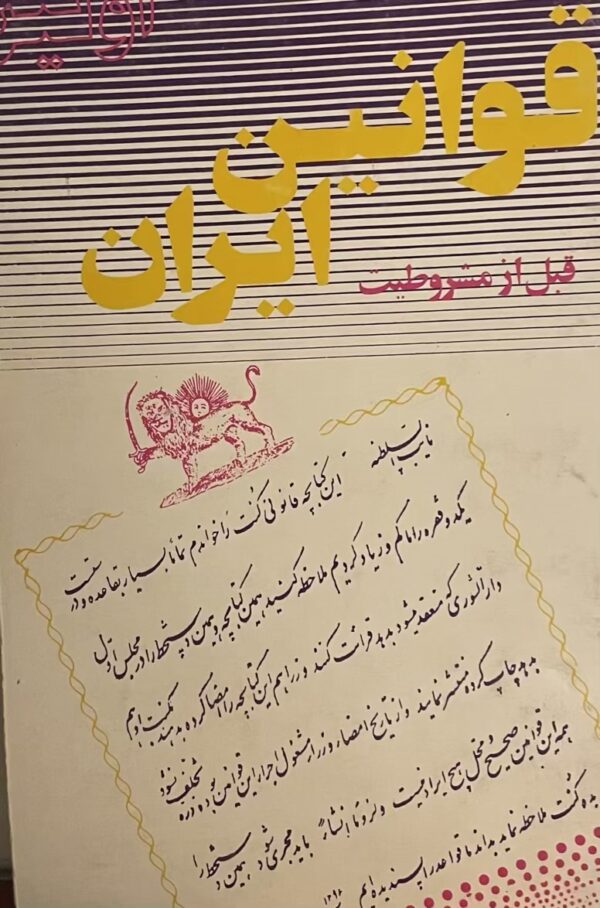 اولین
قوانین
ایران
قبل از مشروطیت
نایب السلطنه
این کتابچه قانونی کنت را خواندم تماماً بسیار بقاعده و درست است
یکدو فقره را ما کم و زیاد کردیم ملاحظه کنید همین کتابچه و همین دستخط را در مجلس اول
دارالشوری که منعقد میشود بدهید قرائت کنند وزرا هم این کتابچه را امضا کرده بدهند بکنت او هم
بدهد چاپ کرده منتشر نمایند و از تاریخ امضاء وزراء مشغول اجراء این قوانین بوده تخلف نشود
همه این قوانین صحیح و محل هیچ ایراد نیست و باید مجری شود همین دستخط را
بده کنت ملاحظه نماید بداند ما قواعد را پسندیده‌ایم ۱۲۹۶